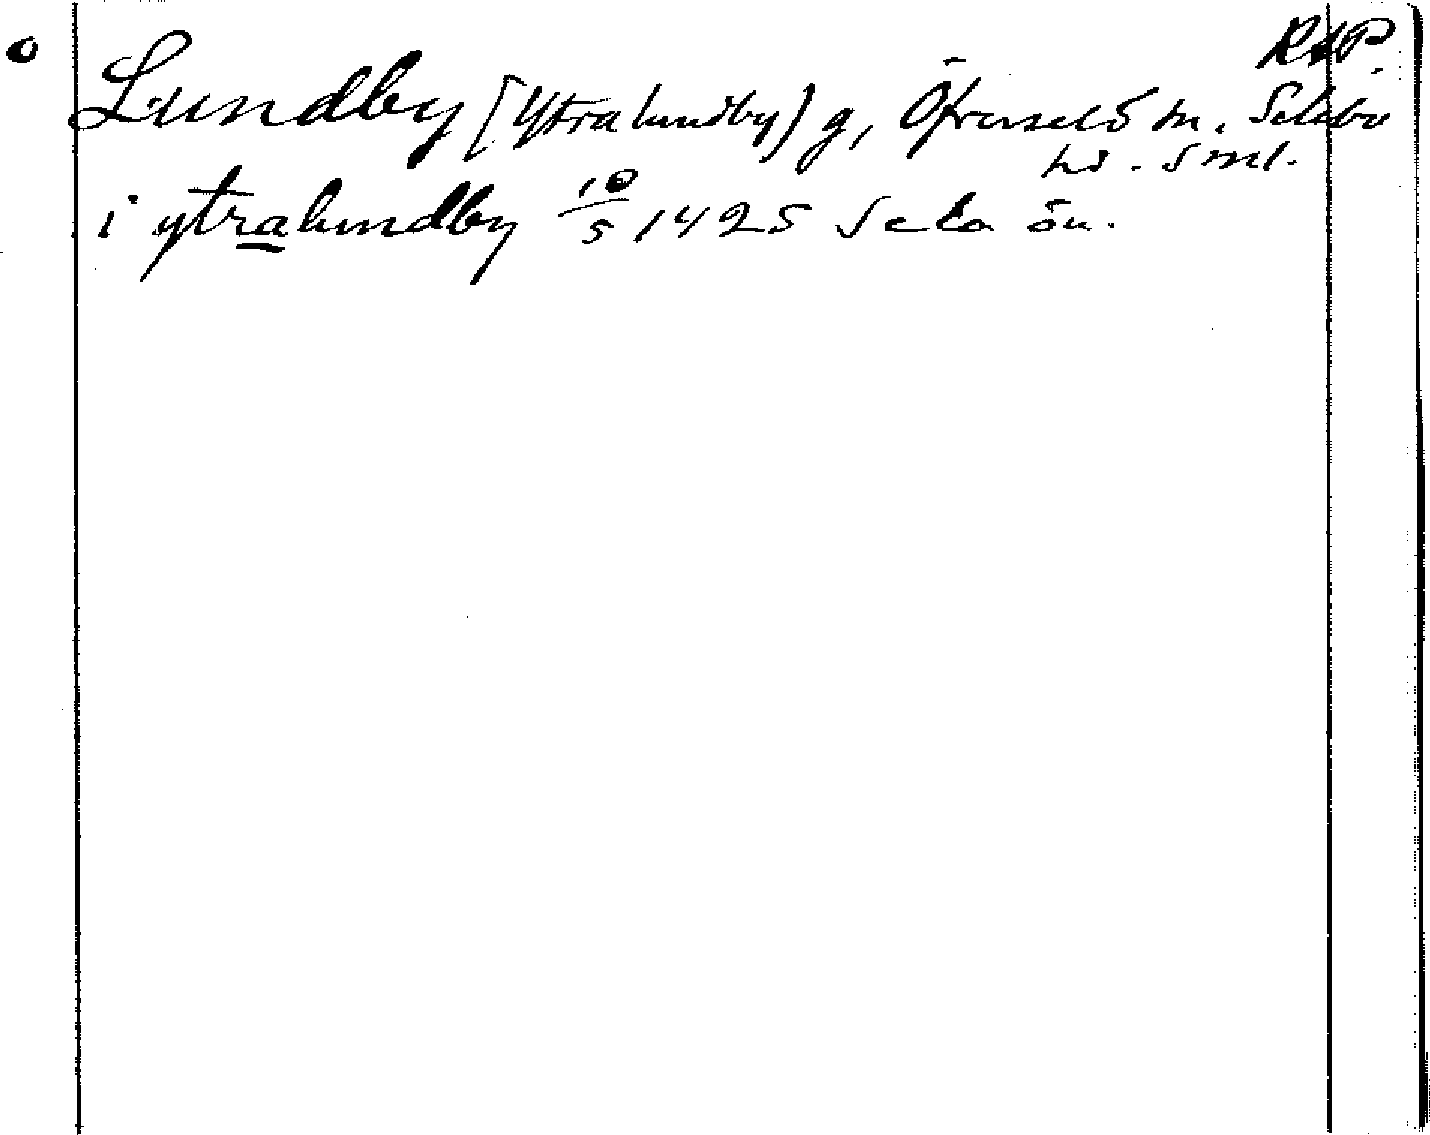 RAP.
Lundby (Ytralundby) g, Öfverselö sn. Selebo
hd. Sml.
i ytralundby 10/5 1425 Sela ön.